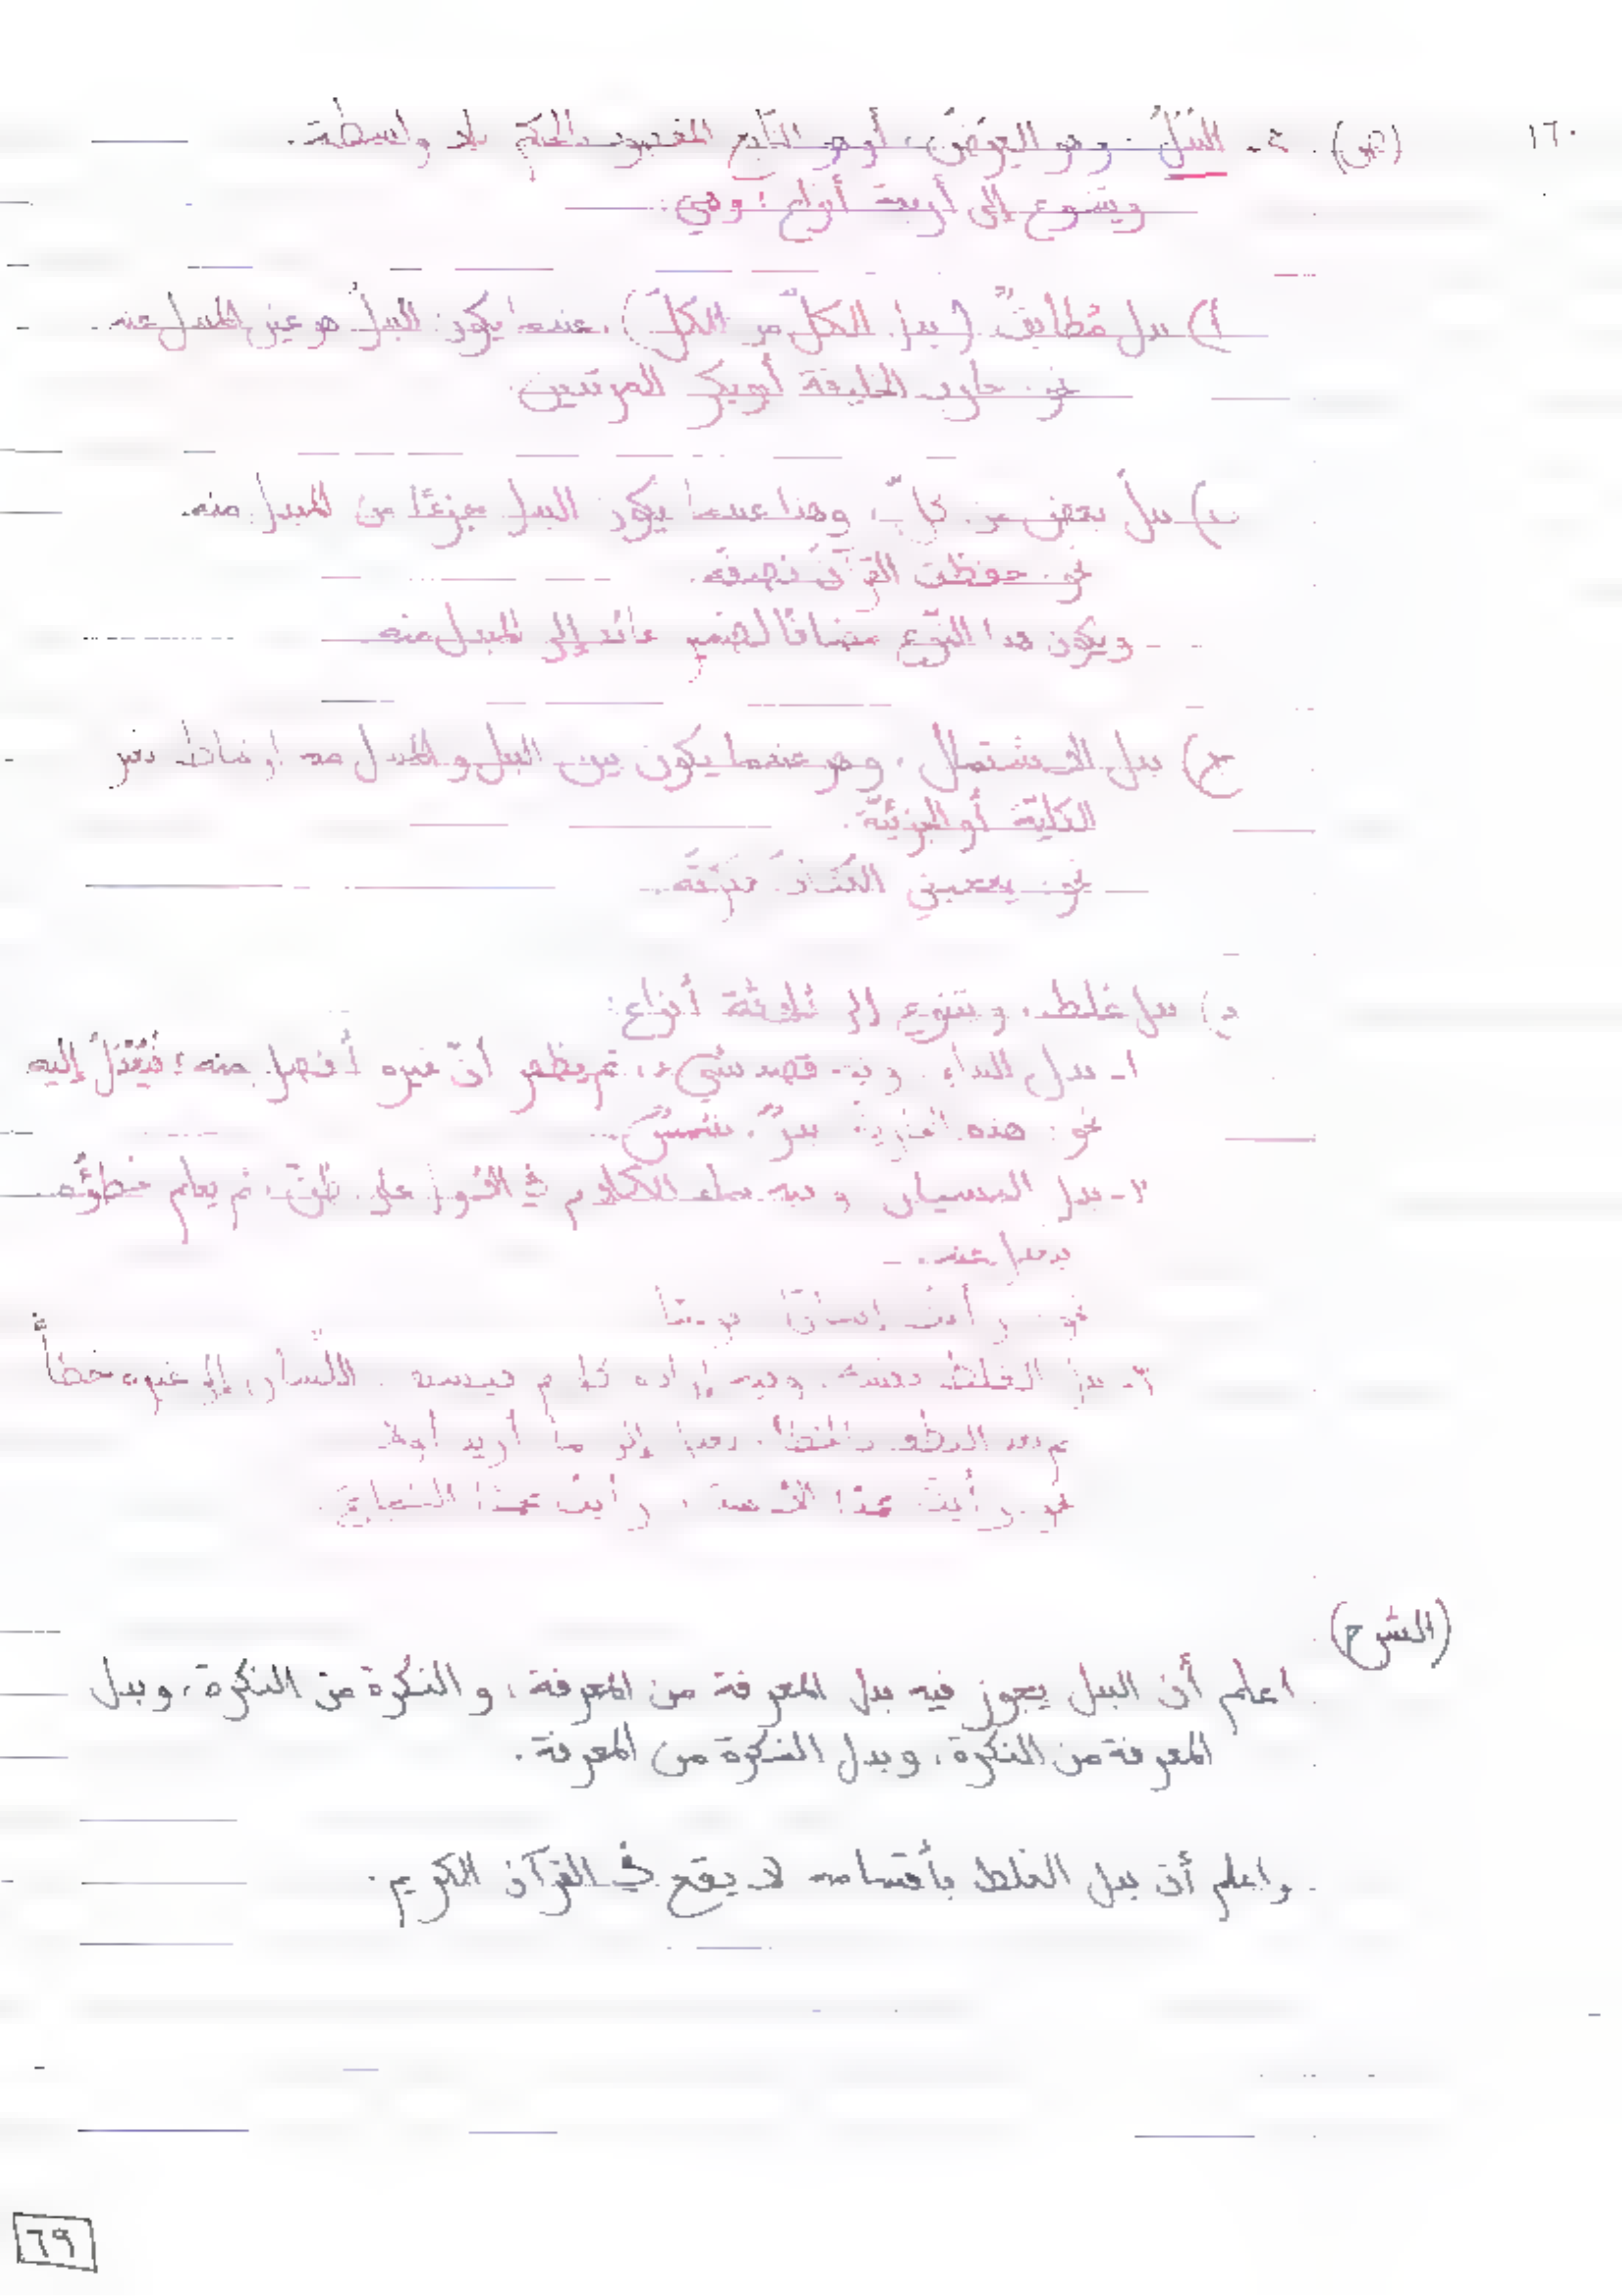 ١٦٠ (ص) ٤- البَدَلُ: وهو العِوَضُ، أو هو التّابع المقصود بالحكم بلا واسطة.
ويتنوع إلى أربعة أنواع؛ وهي:
أ) بدل مُطابقٌ (بدل الكلّ من الكلّ)، عندما يكون البدلُ هو عين المبدل عنه
نحو: حارب الخليفة أبو بكر المرتدين.
ب) بدلُ بعضٍ من كلٍّ، وهذا عندما يكون البدل جزءًا من المبدل منه.
نحو: حفظت القرآنَ نصفَه.
- ويكون هذا النّوع مضافًا لضمير عائد إلى المبدل منه
ج) بدل الاشتمال، وهو عندما يكون بين البدل والمبدل منه ارتباط بغير
الكليّة أو الجزئيّة.
نحو: يعجبني
د) بدل غلط، ويتنوع إلى ثلاثة أنواع:
١- بدل البداء، وفيه قصد شيء، ثم يظهر أنّ غيره أفضل منه؛ فيُعْدَلُ إليه
نحو: هذه بدرٌ، شمسٌ.
٢- بدل النسيان وفيه الكلام في على ظنّ، ثم يعلم خطؤُه
فيعدل عنه.
نحو: رأيت إنسانًا
٣- بدل الغلط نفسه، وفيه إرادة كلام فيسبق اللّسان إلى غيره خطأً
ثم بعد بالخطأ، يعدل إلى ما أريد أولا
نحو: رأيت محمدًا ، رأيت محمدًا الشجاع.
(الشرح)
اعلم أن البدل يجوز فيه بدل المعرفة من المعرفة، والنكرة من النكرة، وبدل
المعرفة من النكرة، وبدل النكرة من المعرفة.
واعلم أن بدل الغلط بأقسامه لا يقع في القرآن الكريم.
٦٩